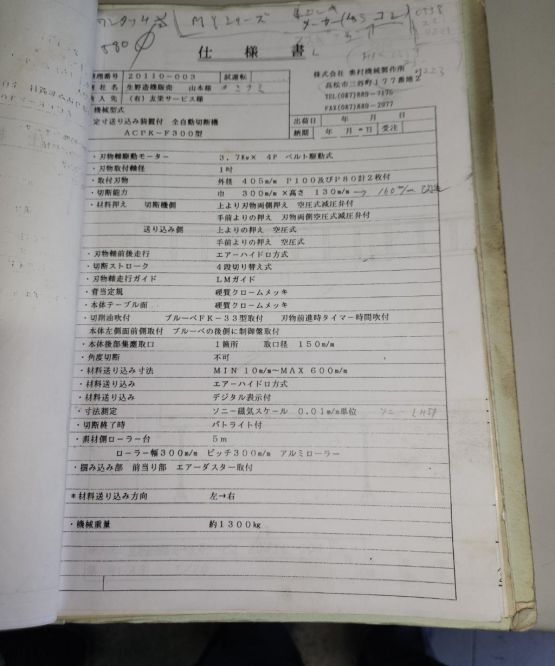 ワンタッチ
MYシリーズ
メーカー
580
仕様書
管理番号 20110-003 試運転
山本様
(有)友栄サービス様
機械型式
定寸送り込み装置付 全自動切断機
ACPK-F300型
株式会社 奥村機械製作所
高松市三谷町177番地2
TEL(087)889-7876
FAX(087)889-2977
出荷日 年 月 日
納期 年 月 日 受注
・刃物軸駆動モーター 3.7Kw× 4P ベルト駆動式
・刃物取付軸径 1吋
・取付刃物 外径 405m/m P100及びP80計2枚付
・切断能力 巾 300m/m ×高さ 130m/m → 160m/m
・材料押え 切断機側 上より刃物両側押え 空圧式減圧弁付
手前よりの押え 刃物両側空圧式減圧弁付
送り込み側 上よりの押え 空圧式
手前よりの押え 空圧式
・刃物軸前後走行 エアーハイドロ方式
・切断ストローク 4段切り替え式
・刃物軸走行ガイド LMガイド
・背当定規 硬質クロームメッキ
・本体テーブル面 硬質クロームメッキ
・切削油吹付 ブルーベFK-33型取付 刃物前進時タイマー時間吹付
本体左側面前側取付 ブルーベの後側に制御盤取付
・本体後部集塵取口 1箇所 取口径 150m/m
・角度切断 不可
・材料送り込み寸法 MIN 10m/m~MAX 600m/m
・材料送り込み エアーハイドロ方式
・材料送り込み デジタル表示付
・寸法測定 ソニー磁気スケール 0.01m/m単位 ソニー
・切断終了時 パトライト付
・素材側ローラー台 5m
ローラー幅300m/m ピッチ300m/m アルミローラー
・掴み込み部 前当り部 エアーダスター取付
*材料送り込み方向 左→右
・機械重量 約1300kg